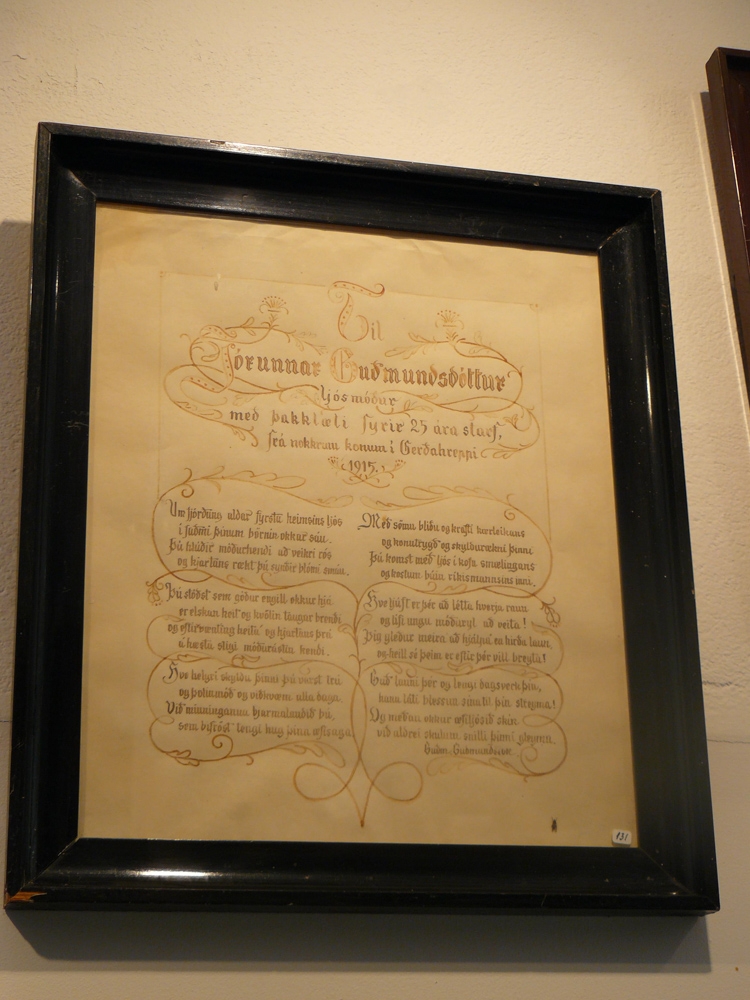 Til
Þórunnar Guðmundsdóttur
ljósmóður
með þakklæti fyrir 25 ára starf,
frá nokkrum konum í Gerðahreppi
1915.
Um fjórðung aldar fyrsta heimsins ljós
í þinum börnin okkur sáu.
Þú hlúðir móðurhendi að veikri rós
og hjartans rækt þú sýndir blómi smáu.
Þú stóðst sem góður engill okkur hjá
er elskan heit og kvölin taugar brendi
og eftirvænting heita og hjartans þrá
á hæsta stigi móðurástin kendi.
Hve helgri skyldu þinni þú varst trú
og þolinmóð og viðkvæm alla daga.
Við minninganna bjarmalandið þú,
sem bifröst tengi hug þína æfisaga.
Með sömu blíðu og krafti kærleikans
og konutrygð og skyldurækni þinni
Þú komst með ljós í kofa smælingjans
og kostum búin ríkismannsins inni.
Hve ljúft er þér að létta hverja raun
og líf ungu móður að veita!
Þig gleður meira að hjálpa en hirða laun,
og heill sé þeim er eftir þér vill breyta!
Guð launi þér og lengi dagsverk þín,
hann láti blessun sína til þín streyma!
Og meðan okkur æfiljósið skín
við aldrei skulum snilli þinni gleyma.
Guðm. Guðmundsson.
131